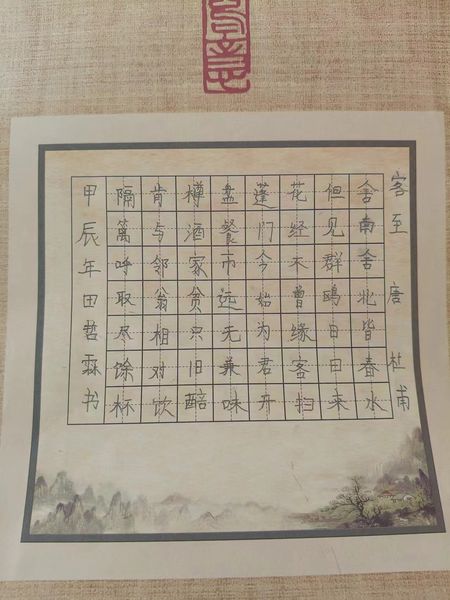 客至 唐 杜甫
舍南舍北皆春水
但见群鸥日日来
花经不曾缘客扫
蓬门今始为君开
盘餐市远无兼味
樽酒家贫只旧醅
肯与邻翁相对饮
隔篱呼取尽馀杯
甲辰年田哲霖书